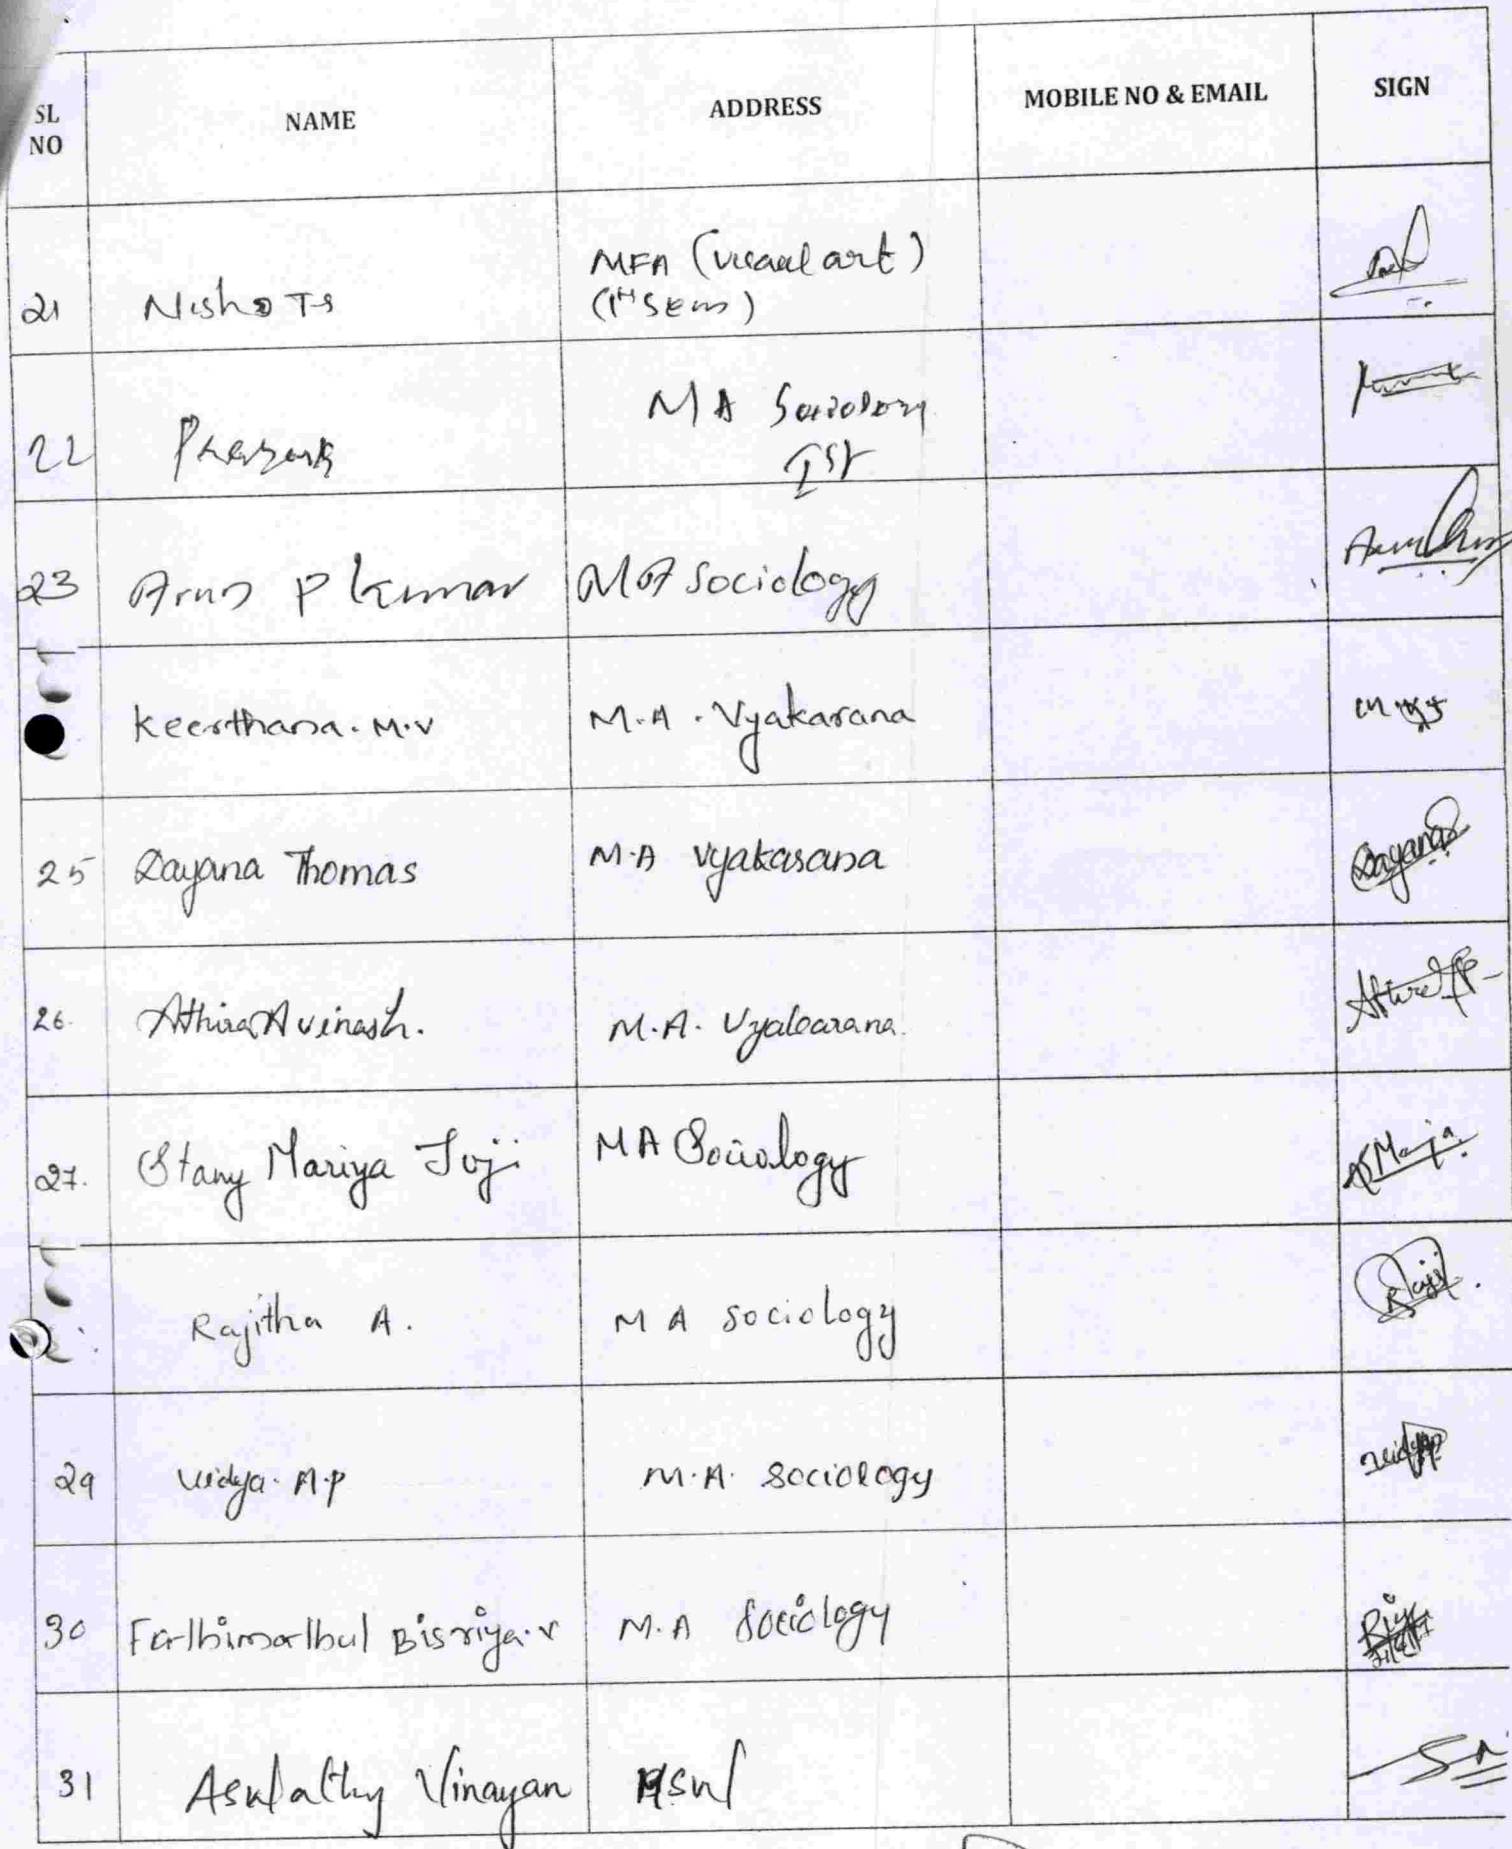 SL NO NAME ADDRESS MOBILE NO & EMAIL SIGN
21 Nisha T S MFA (visual art)
(1st Sem)
22 MA Sociology
Ist
23 Arun P Kumar MA Sociology
Keerthana. M.V M.A. Vyakarana
25 Dayana Thomas M.A Vyakarana Dayana
26. Athira Avinash. M.A. Vyakarana.
27. Stany Mariya Joji MA Sociology
Rajitha A. M A Sociology Raji
29 Vidya. A.P M.A. Sociology
30 Fathimathul Bisriya.V M.A Sociology
31 Aswathy Vinayan MSW